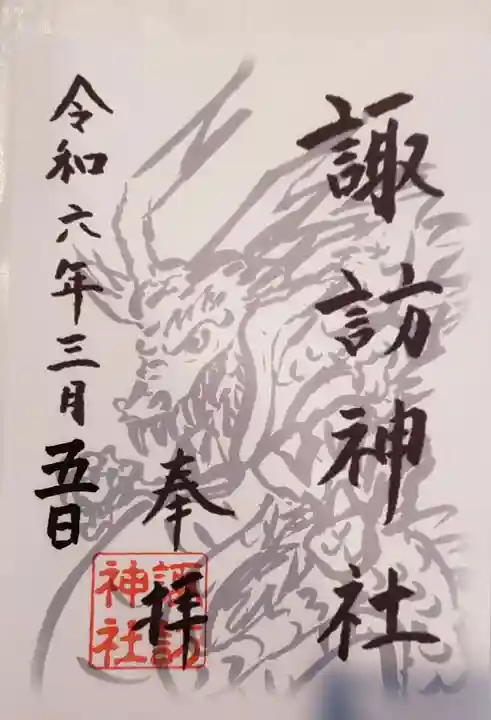 諏訪神社
奉拝
諏訪
神社
令和六年三月五日